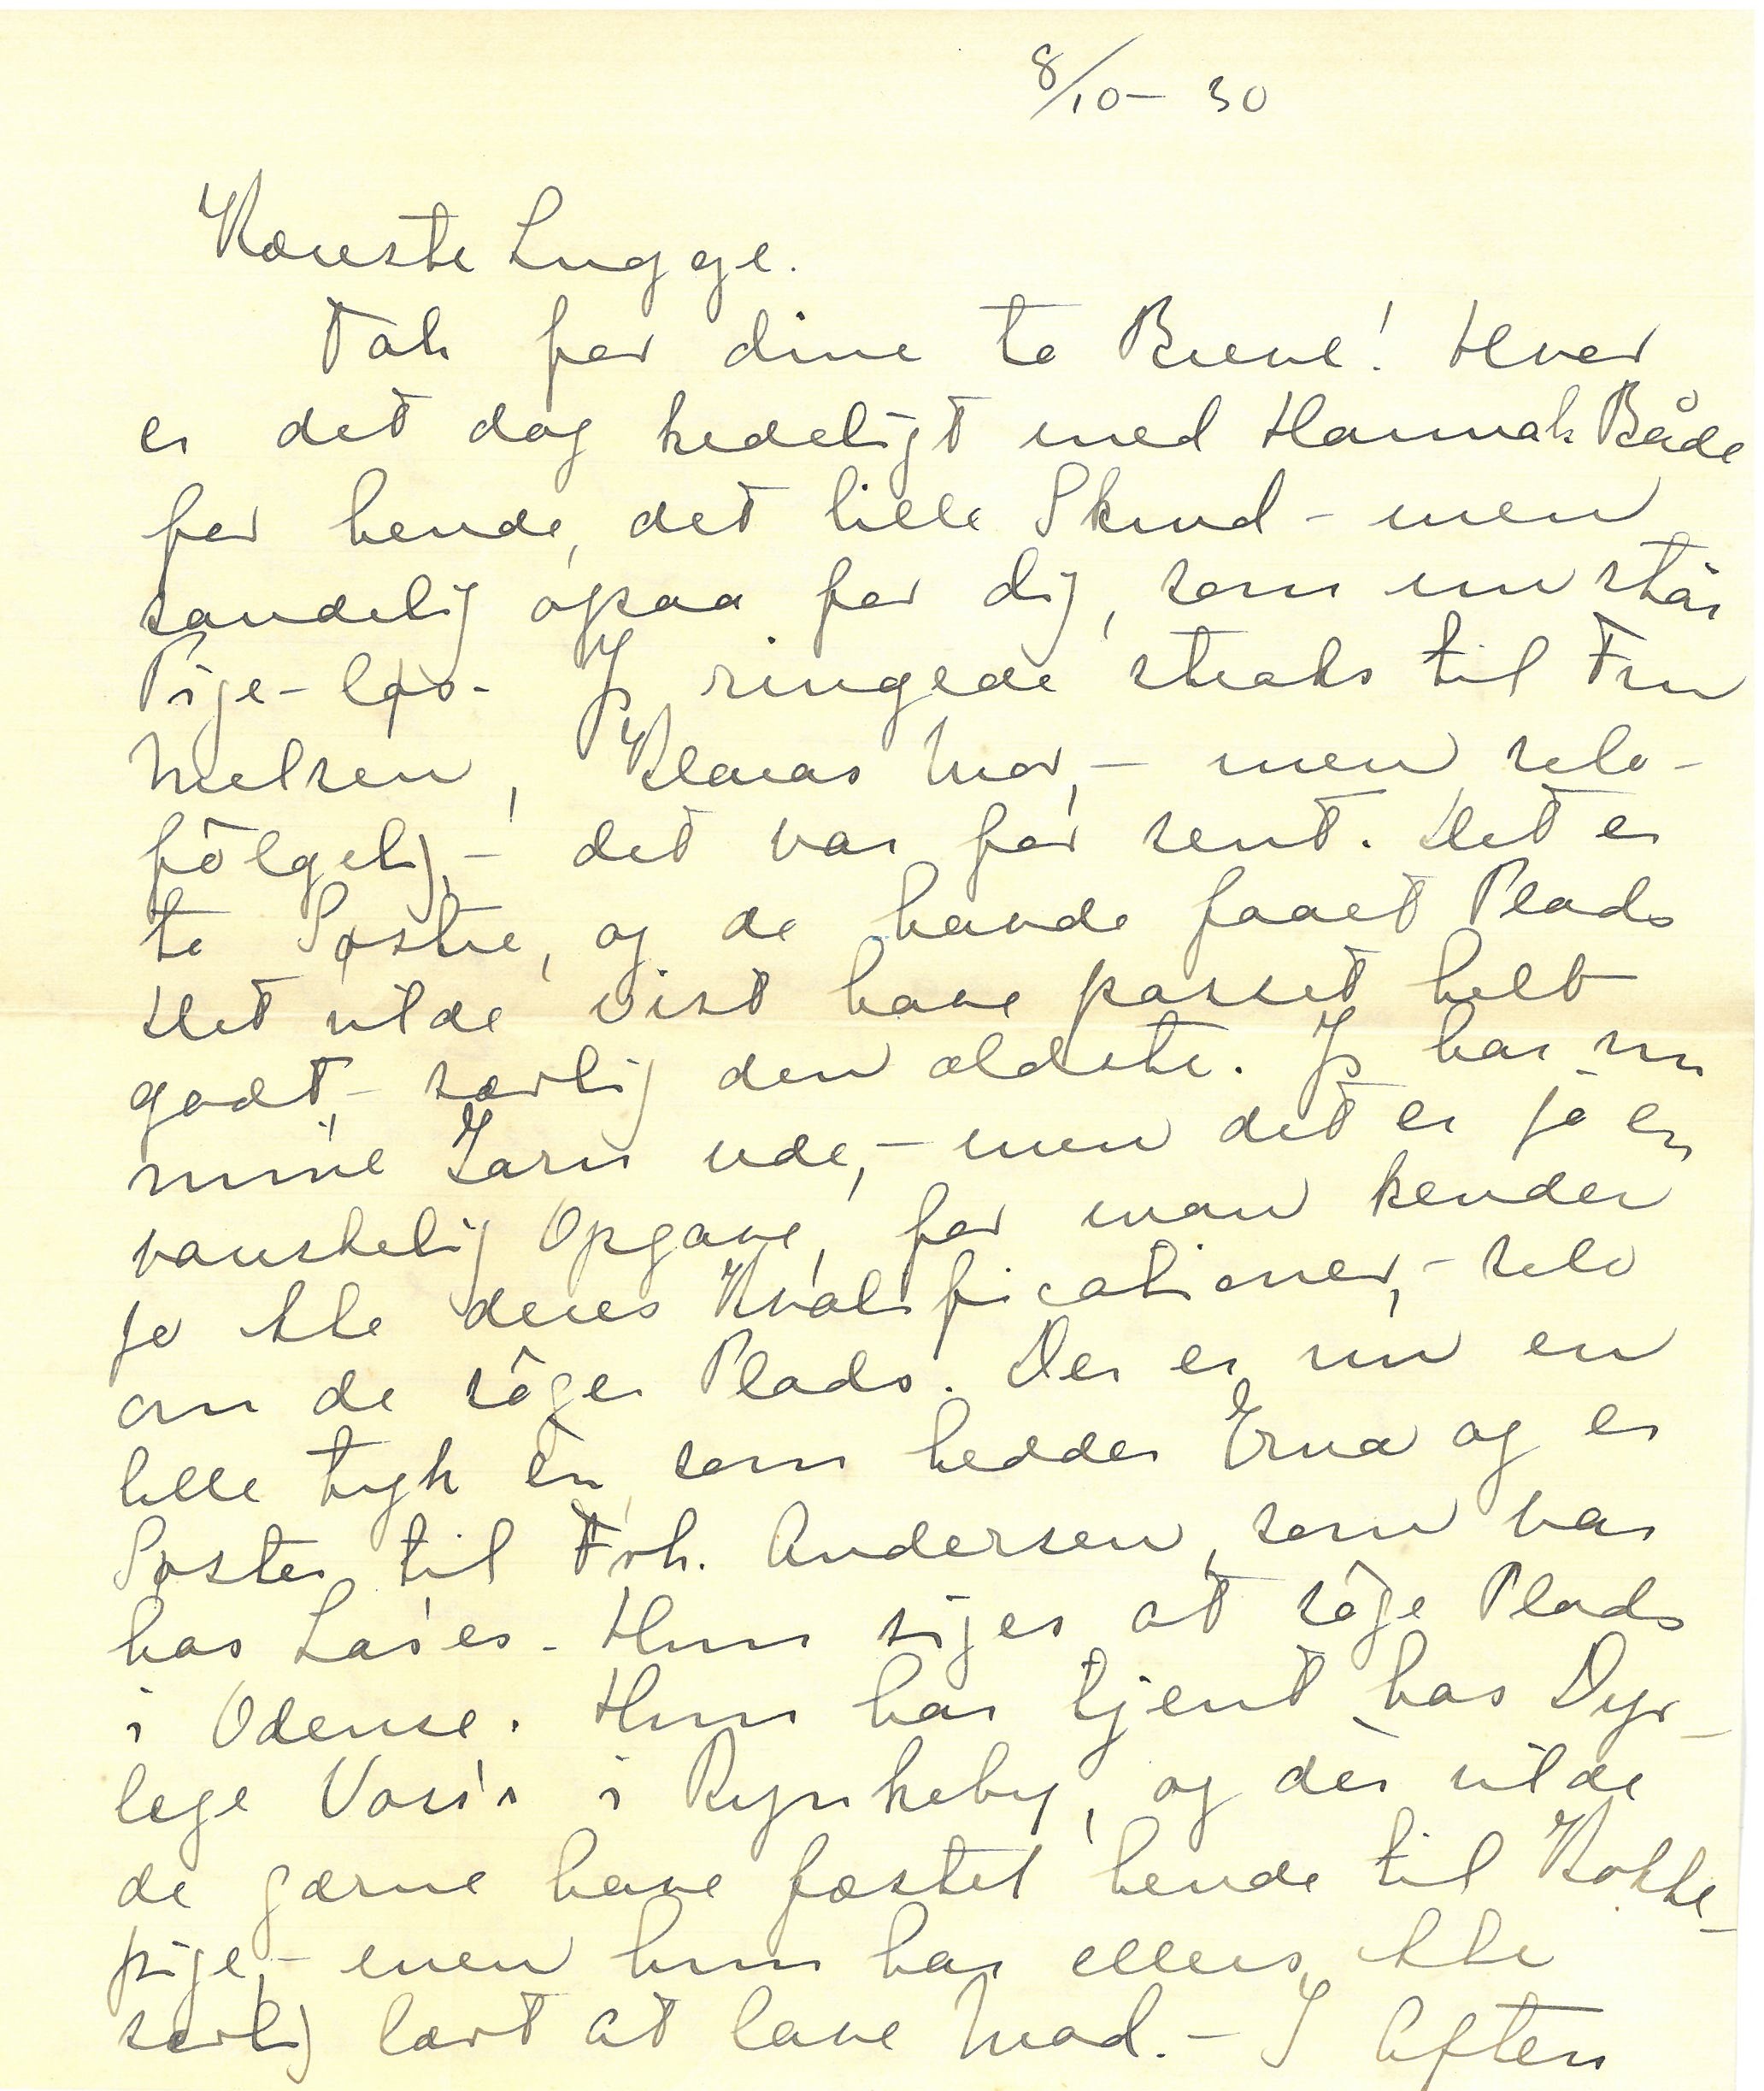 8/10 - 30
Kæreste Lugge.
Tak for dine to Breve! Hvor
er det dog kedeligt med Hannah Både
for hende, det lille Skind - men
sandelig ogsaa for dig, som nu står
Pige-løs - Jeg ringede straks til Fru
Nielsen, Klaras Mor, - men selv-
følgelig, - det var for sent. Det er
to Søstre, og de havde faaet Plads
Det vilde vist have passet helt
godt, - særlig den ældste. Jeg har nu
mine Garn ude, - men det er jo en
vanskelig Opgave, for man kender
jo ikke deres Kvalificationer, - selv
om de söger Plads. Der er nu en
lille tyk én, som hedder Erna og er
Søster til Frk. Andersen, som var
hos Las'es - Hun siges at söge Plads
i Odense. Hun har tjent hos Dyr-
læge i Rynkeby, og dér vilde
de gærne have fæstet hende til Kokke-
pige, - men hun har ellers ikke
særlig lært at lave Mad. - I Aften